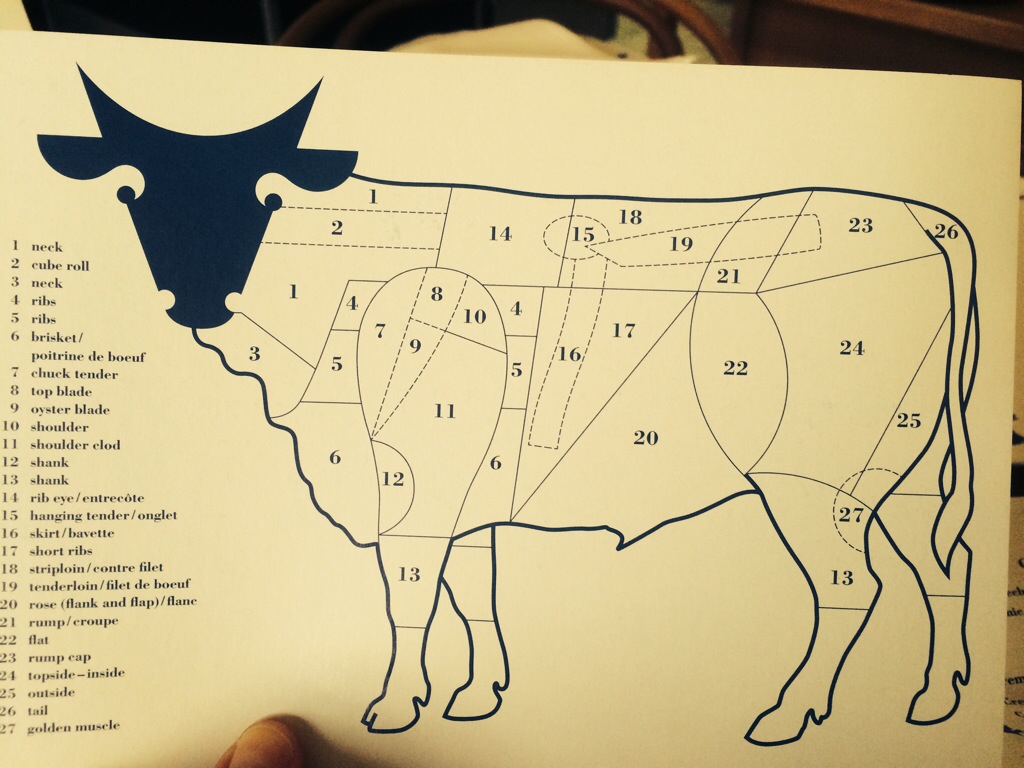 1 neck
2 cube roll
3 neck
4 ribs
5 ribs
6 brisket/
poitrine de boeuf
7 chuck tender
8 top blade
9 oyster blade
10 shoulder
11 shoulder clod
12 shank
13 shank
14 rib eye/entrecôte
15 hanging tender/onglet
16 skirt/bavette
17 short ribs
18 striploin/contre filet
19 tenderloin/filet de boeuf
20 rose (flank and flap)/flanc
21 rump/croupe
22 flat
23 rump cap
24 topside–inside
25 outside
26 tail
27 golden muscle
1
2
14
15
18
19
23
26
21
1
3
4
5
7
8
9
10
4
5
11
16
17
22
24
6
12
6
20
25
27
13
13